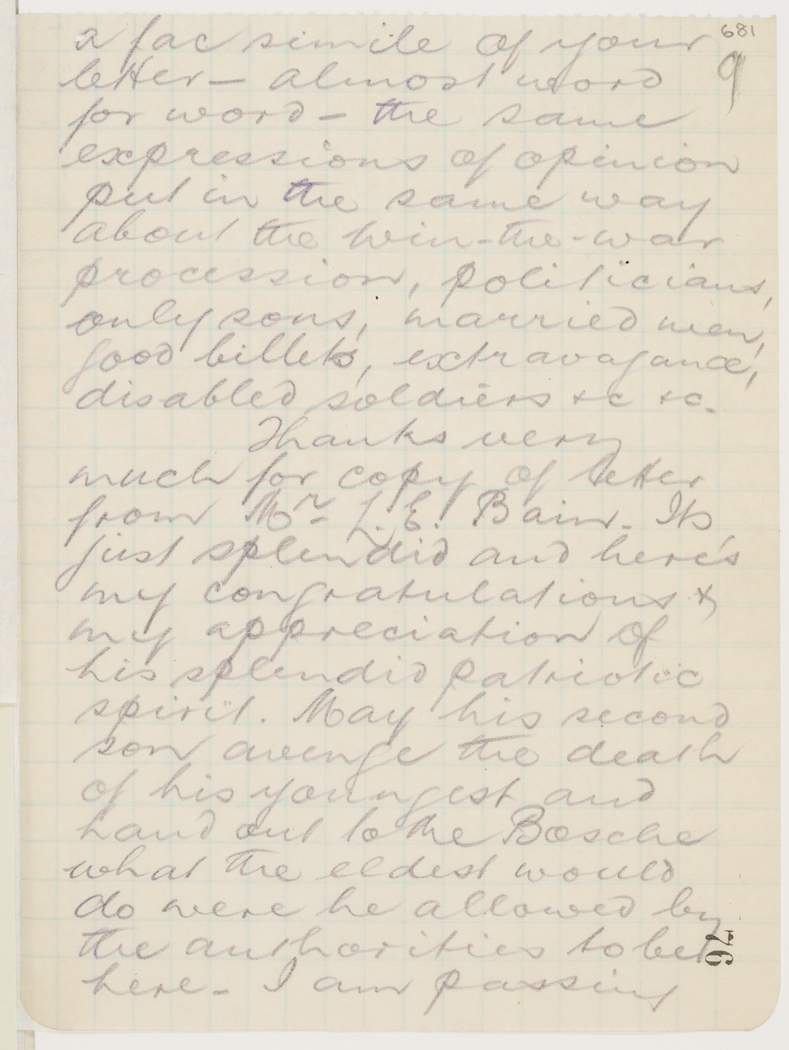 681
9
a fac simile of your
letter – almost word
for word – the same
expressions of opinion
put in the same way
about the win-the-war
procession, politicians,
only sons, married men,
good billets, extravagance,
disabled soldiers &c &c.
Thanks very
much for copy of letter
from Mr. L. E. Bain. Its
just splendid and here's
my congratulations &
my appreciation of
his splendid patriotic
spirit. May his second
son avenge the death
of his youngest and
hand out to the Bosche
what the eldest would
do were he allowed by
the authorities to be
here – I am passing
76